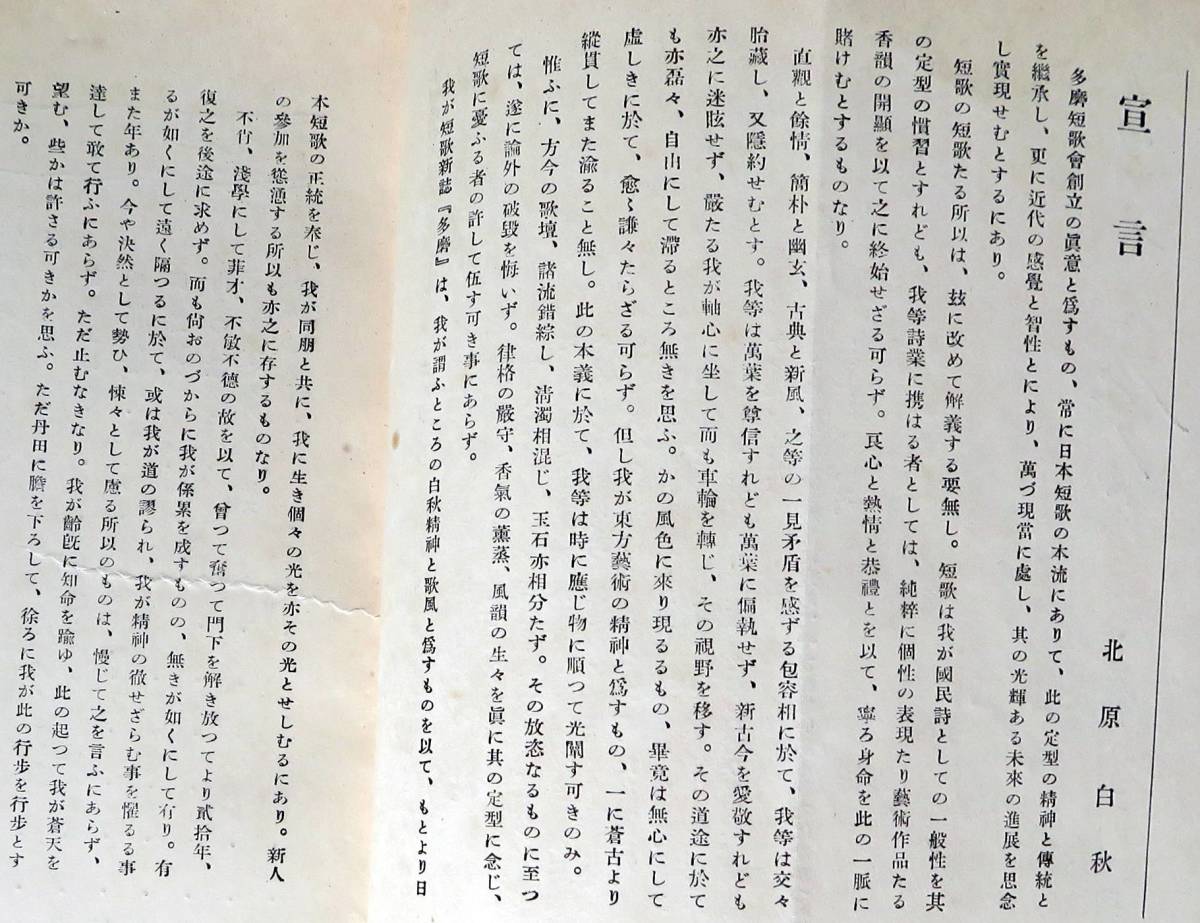 宣言
北原白秋
多磨短歌會創立の眞意と爲すもの、常に日本短歌の本流にありて、此の定型の精神と傳統と
を繼承し、更に近代の感覺と智性とにより、萬づ現當に處し、其の光輝ある未來の進展を思念
し實現せむとするにあり。
短歌の短歌たる所以は、玆に改めて解義する要無し。短歌は我が國民詩としての一般性を其
の定型の慣習とすれども、我等詩業に携はる者としては、純粹に個性の表現たり藝術作品たる
香韻の開顯を以て之に終始せざる可らず。良心と熱情と恭禮とを以て、寧ろ身命を此の一脈に
賭けむとするものなり。
直觀と餘情、簡朴と幽玄、古典と新風、之等の一見矛盾を感ずる包容相に於て、我等は交々
胎藏し、又隱約せむとす。我等は萬葉を尊信すれども萬葉に偏執せず、新古今を愛敬すれども
亦之に迷眩せず、嚴たる我が軸心に坐して而も車輪を轉じ、その視野を移す。その道途に於て
も亦磊々、自由にして滯るところ無きを思ふ。かの風色に來り現るるもの、畢竟は無心にして
虛しきに於て、愈〻謙々たらざる可らず。但し我が東方藝術の精神と爲すもの、一に蒼古より
縱貫してまた渝ること無し。此の本義に於て、我等は時に應じ物に順つて光闡す可きのみ。
惟ふに、方今の歌壇、諸流錯綜し、淸濁相混じ、玉石亦相分たず。その放恣なるものに至つ
ては、遂に論外の破毀を悔いず。律格の嚴守、香氣の薰蒸、風韻の生々を眞に其の定型に念じ、
短歌に憂ふる者の許して伍す可き事にあらず。
我が短歌新誌『多磨』は、我が謂ふところの白秋精神と歌風と爲すものを以て、もとより日
本短歌の正統を奉じ、我が同朋と共に、我に生き個々の光を亦その光とせしむるにあり。新人
の參加を慫慂する所以も亦之に存するものなり。
不肖、淺學にして菲才、不敏不德の故を以て、曾つて奮つて門下を解き放つてより貳拾年、
復之を後途に求めず。而も尙おのづからに我が係累を成すものの、無きが如くにして有り。有
るが如くにして遠く隔つるに於て、或は我が道の謬られ、我が精神の徹せざらむ事を懼るる事
また年あり。今や決然として勢ひ、悚々として慮る所以のものは、慢じて之を言ふにあらず、
達して敢て行ふにあらず。ただ止むなきなり。我が齡旣に知命を踰ゆ、此の起つて我が蒼天を
望む、些かは許さる可きかを思ふ。ただ丹田に膽を下ろして、徐ろに我が此の行步を行步とす
可きか。